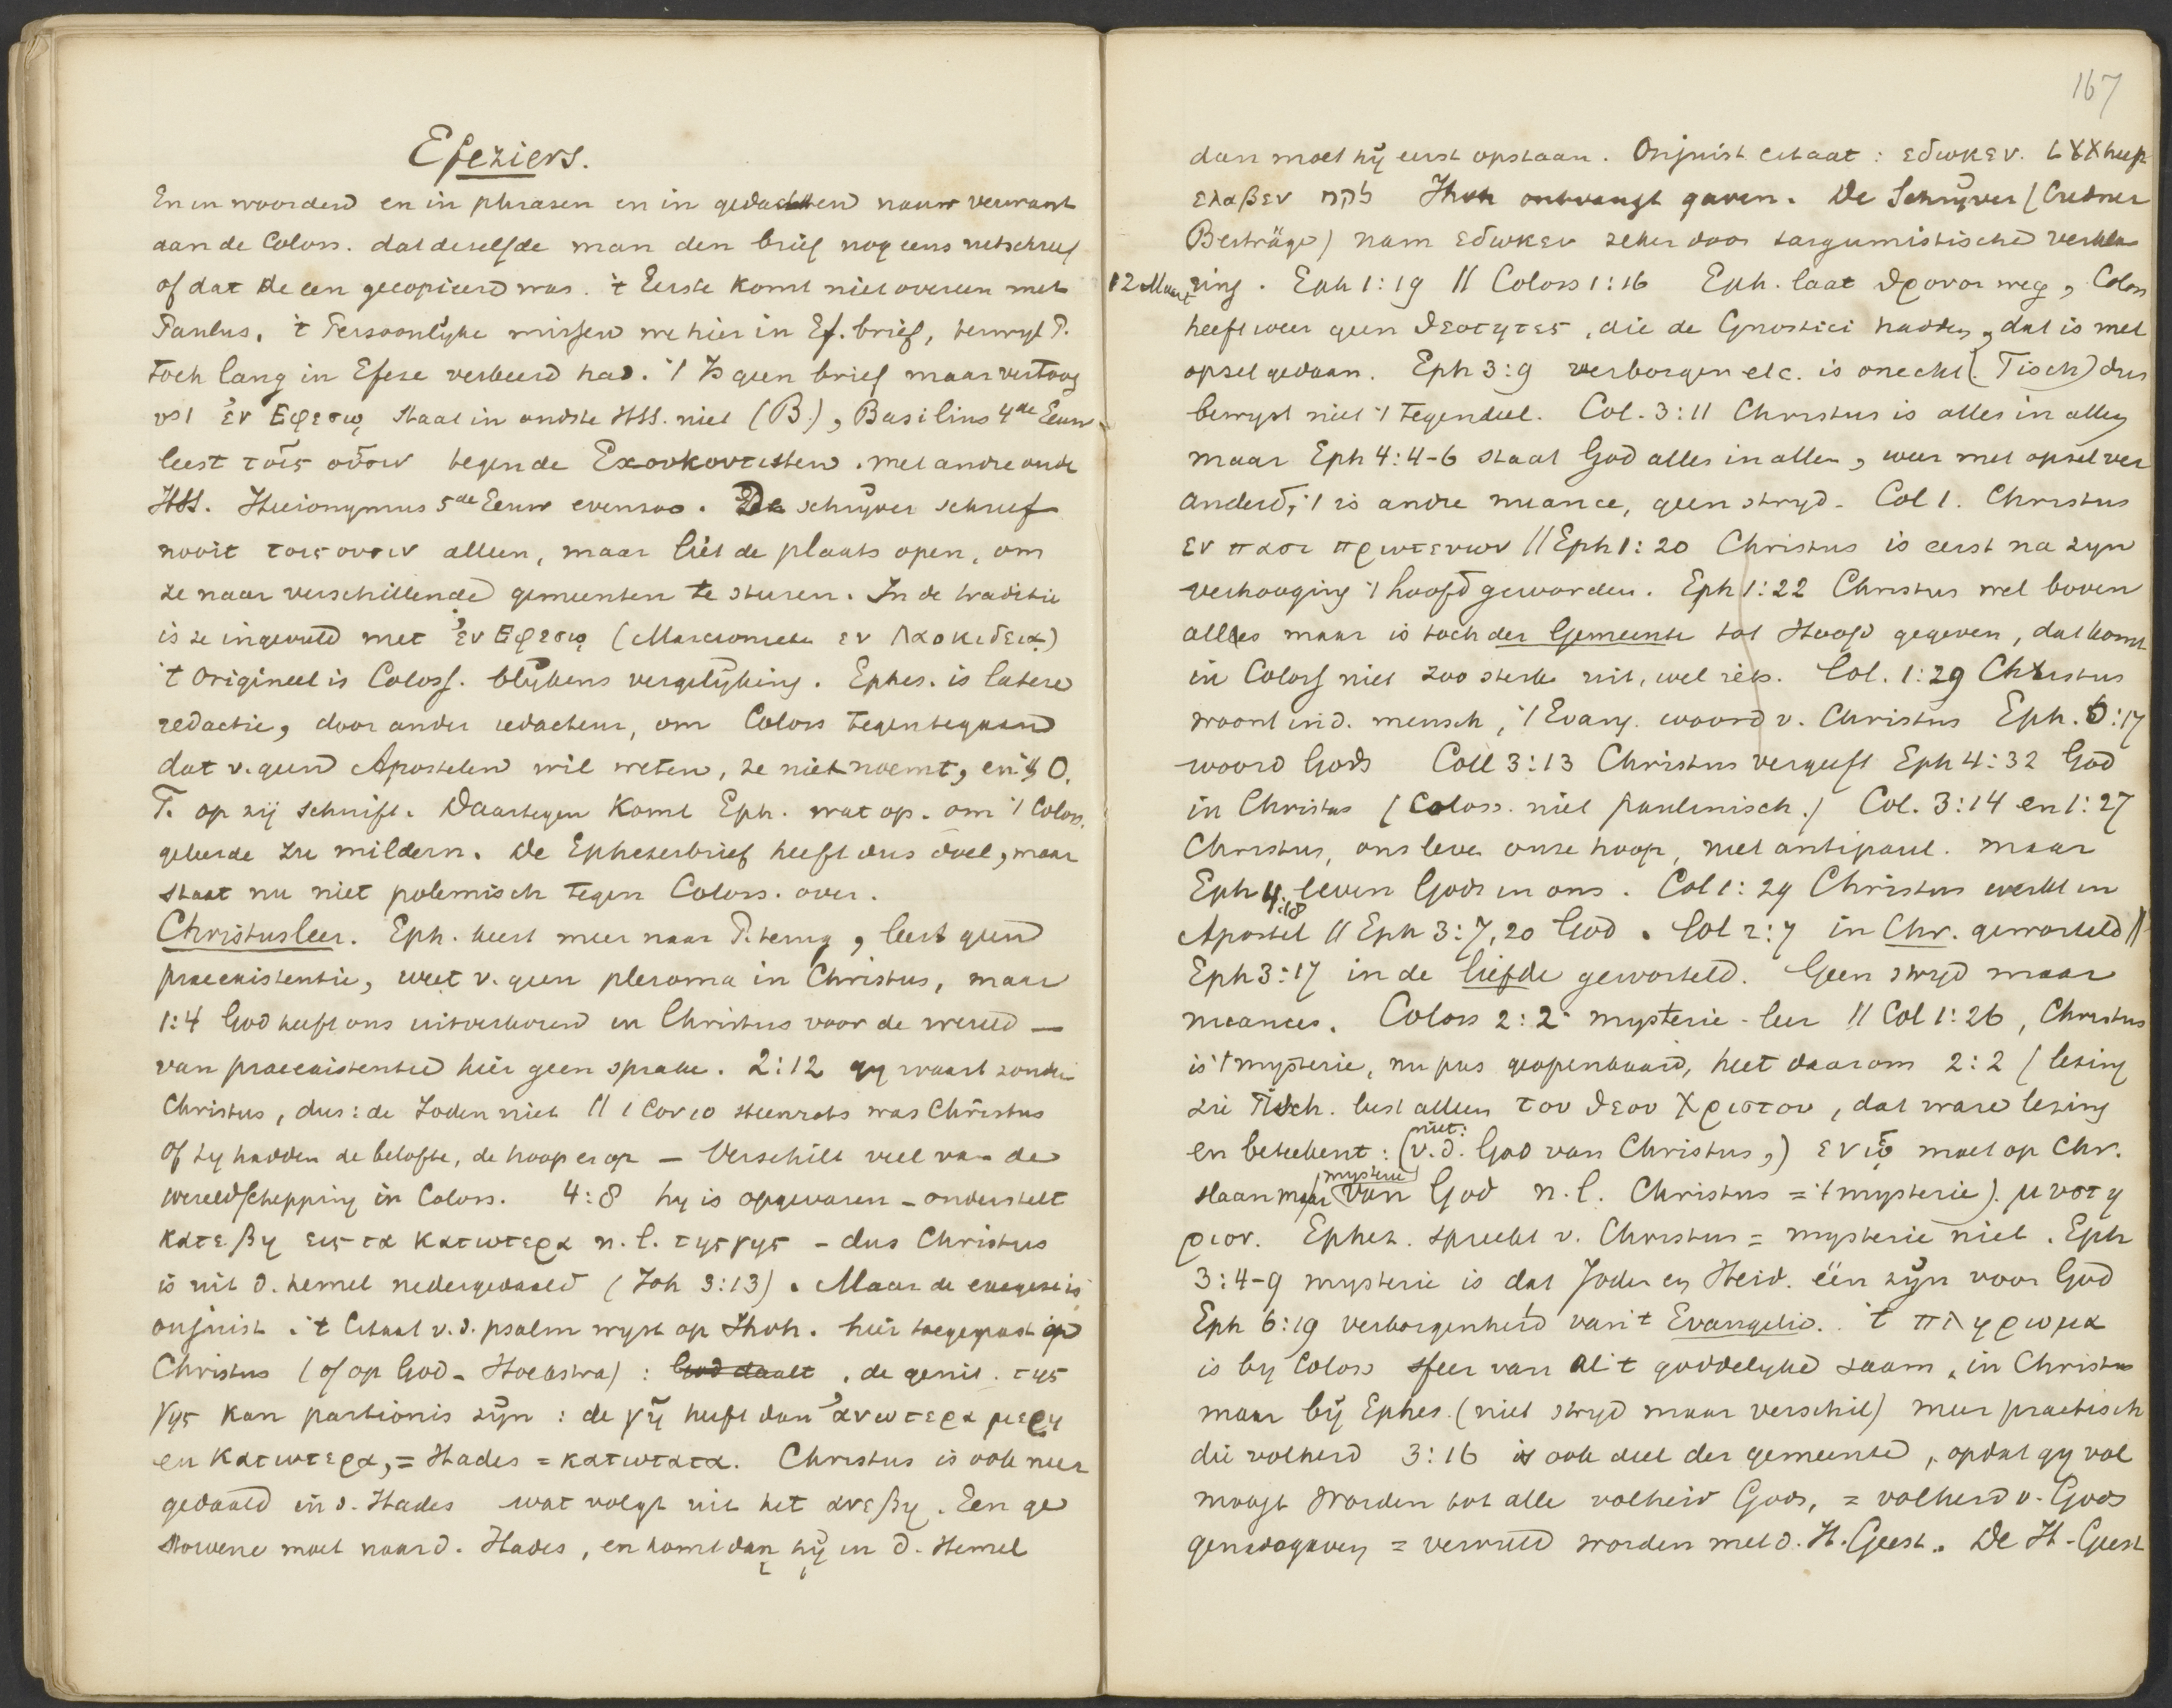 Efeziers.
En in woorden en in phrasen en in gedachten nauw verwant
aan de Coloss. dat deselfde man den brief nog eens netschreef
of dat de een gecopieerd was. 't Eerste komt niet overeen met
Paulus. 't Persoonlyke missen we hier in Ef. brief, terwyl P.
toch lang in Efeze verkeerd had. 't Is geen brief maar vertoog
vs 1 ἐν Εφεσῳ staat in oudste HSS. niet (B.), Basilius 4de Eeuw
leest τοῖς οὖσιν tegen de Εχουκοντισten. met andre oude
HSS. Hieronymus 5de Eeuw evenzoo. De schrÿver schreef
nooit τοις ουσιν alleen, maar liet de plaats open, om
ze naar verschillende gemeenten te sturen. In de traditie
is ze ingevuld met ἐν Εφεσῳ (Marcion εν Λαοκιδειᾳ)
't Origineel is Coloss. blÿkens vergelÿking. Ephes. is latere
redactie, door ander redacteur, om Coloss tegentegaan
dat v. geen Apostelen wil weten, ze niet noemt, en 't O.
T. op zij schuift. Daartegen komt Eph. wat op. om 't Coloss.
geleerde zu mildern. De Ephezerbrief heeft dus doel, maar
staat nu niet polemisch tegen Coloss. over.
Christusleer. Eph. keert meer naar P. terug, leert geen
praeexistentie, weet v. geen pleroma in Christus, maar
1:4 God heeft ons uitverkoren in Christus voor de wereld —
van praeexistentie hier geen sprake. 2:12 gy waart zonder
Christus, dus: de Joden niet // 1 Cor 10 steenrots was Christus
of zy hadden de belofte, de hoop er op — Verschilt veel van de
wereldschepping in Coloss. 4:8 hy is opgevaren – onderstelt
κατεβη εις τα κατωτερα n.l. της γης – dus Christus
is uit d. hemel nedergedaald (Joh 3:13). Maar de exegese is
onjuist. 't Citaat v. d. psalm wyst op Jhvh. hier toegepast op
Christus (of op God – Hoekstra): God daalt, de genit. της
γης kan partionis zÿn: de γῆ heeft dan ἀνωτερα μερη
en κατωτερα, = Hades = κατωτατα. Christus is ook neer
gedaald in d. Hades wat volgt uit het ανεβη. Een ge
storvene moet naar d. Hades, en komt dan hÿ in d. Hemel
167
dan moet hÿ eerst opstaan. Onjuist citaat: εδωκεν. LXX heeft
ελαβεν לקח Jhvh ontvangt gaven. De Schrÿver (Credner
Beiträge) nam εδωκεν zeker door targumistische verkla
12 Maart ring. Eph 1:19 // Coloss 1:16 Eph. laat θρονοι weg, Coloss
heeft weer geen θεοτητες, die de Gnostici hadden, dat is met
opset gedaan. Eph 3:9 verborgen etc. is onecht (Tisch) dus
bewyst niet 't tegendeel. Col. 3:11 Christus is alles in allen
maar Eph 4:4-6 staat God alles in allen, weer met opset ver
anderd, 't is andre nuance, geen stryd. Col 1. Christus
εν πασι πρωτευων // Eph 1:20 Christus is eerst na zyn
verhooging 't hoofd geworden. Eph 1:22 Christus wel boven
alles maar is toch der Gemeente tot Hoofd gegeven, dat komt
in Coloss niet zoo sterk uit, wel iets. Col. 1:29 Christus
woont in d. mensch, 't Evang. woord v. Christus Eph. 6:17
woord Gods Coll 3:13 Christus vergeeft Eph 4:32 God
in Christus (Coloss. niet paulinisch.) Col. 3:14 en 1:27
Christus, ons leven onze hoop, niet antipaul. maar
Eph 4:18 leven Gods in ons. Col 1:29 Christus werkt in
Apostel // Eph 3:7,20 God. Col 2:7 in Chr. geworteld //
Eph 3:17 in de liefde geworteld. Geen stryd maar
nuances. Coloss 2:2 mysterie-leer // Col 1:26, Christus
is 't mysterie, nu pas geopenbaard, heet daarom 2:2 (lezing
zie Tisch. leest alleen του θεου Χριστου, dat ware lezing
en beteekent: (niet: v. d. God van Christus,) εν ᾧ moet op Chr.
slaan maar (mysterie van God n.l. Christus = 't mysterie). μυστη
ριον. Ephez. spreekt v. Christus = mysterie niet. Eph
3:4-9 mysterie is dat Joden en Heid. één zÿn voor God
Eph 6:19 verborgenheid van 't Evangelie. 't πληρωμα
is by Coloss sfeer van al 't goddelyke saam, in Christus
maar bÿ Ephes. (niet stryd maar verschil) meer practisch
die volheid 3:16 is ook deel der gemeente, opdat gy vol
moogt worden tot alle volheid Gods, = volheid v. Gods
genadegaven = vervuld worden met d. H. Geest. De H. Geest